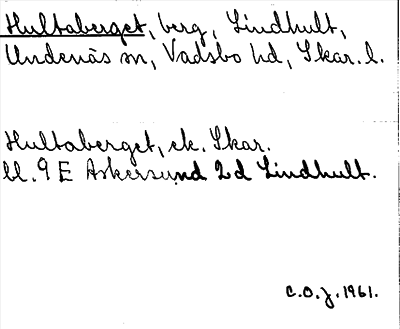 Hultaberget, berg, Lindhult,
Undenäs sn, Vadsbo hd, Skar. l.
Hultaberget, ek. Skar.
bl. 9 E Askersund 2d Lindhult.
C.O.J. 1961.